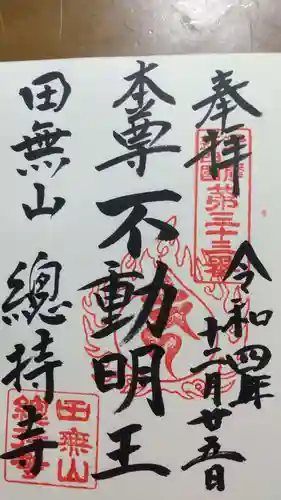 奉拝
第三十三番
令和四年
十二月廿五日
本尊不動明王
田無山
總持寺
田無山